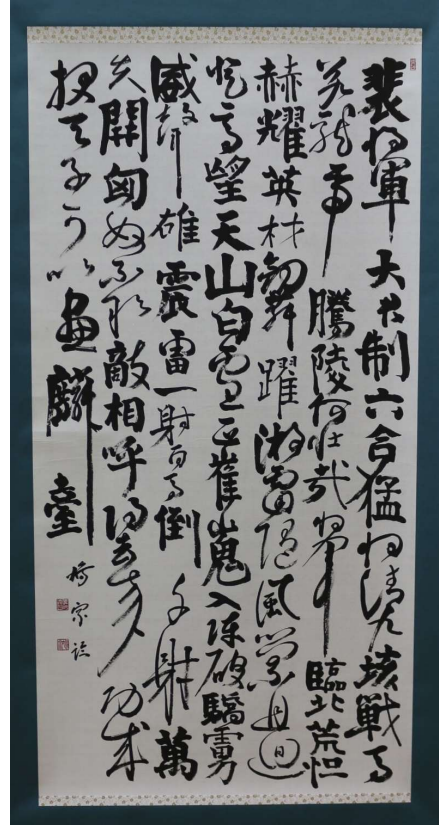 裴将軍大君制六合猛将清九垓戰馬
若龍虎騰陵何壮哉将軍臨北荒烜
赫耀英材劔舞躍游電隨風縈且迴
登高望天山白雲正崔嵬入陣破驕虜
威聲雄震雷一射百馬倒再射萬
夫開匈奴不敢敵相呼歸去來功成
报天子可以畫麟臺